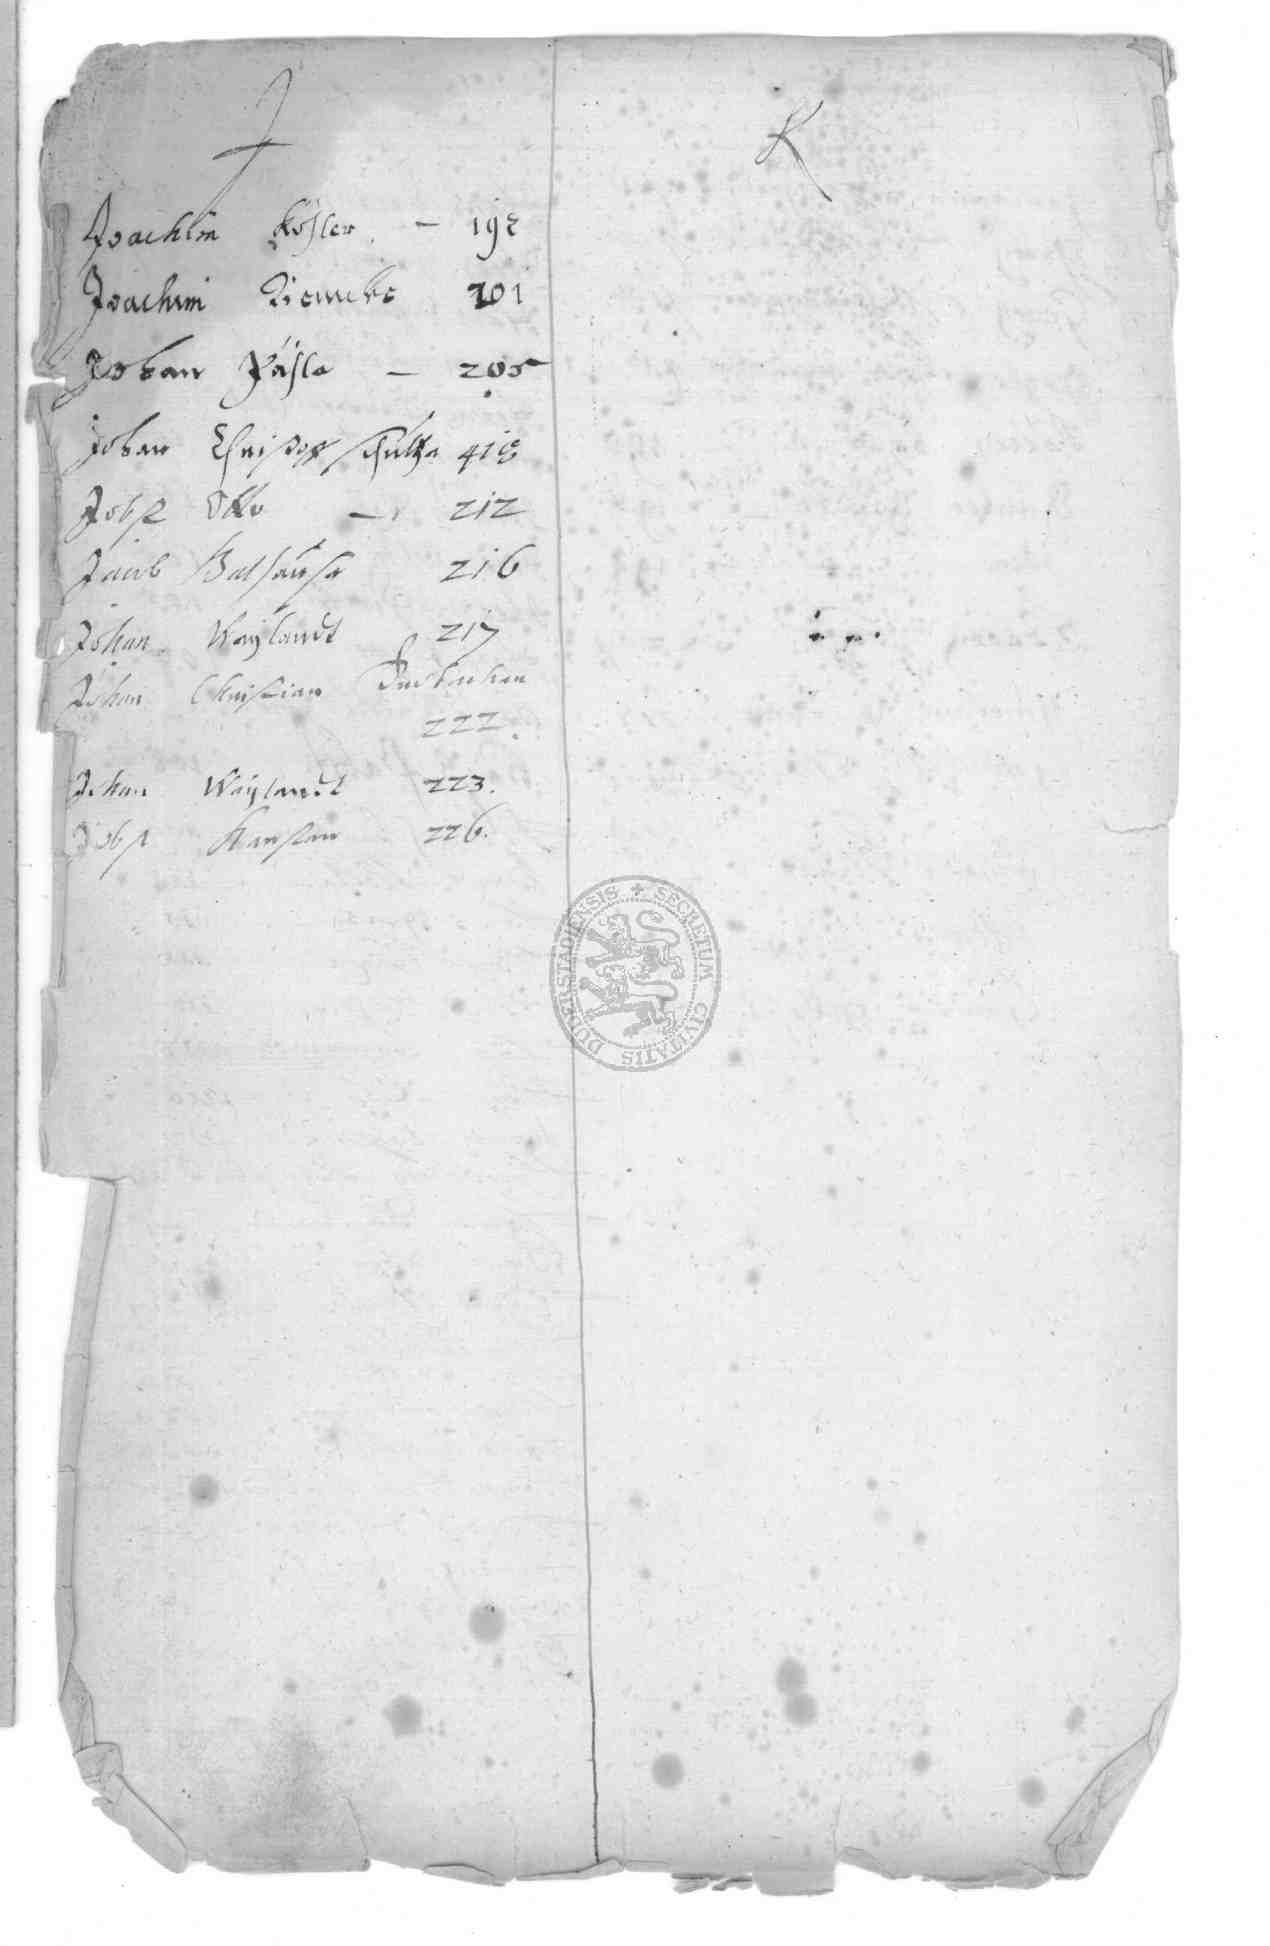 J
Joachim Köhler – 198
Joachim Riemeke 201
Johan – 205
Johan Christoff 418
Jobst Otto – 212
Jacob 216
Johan Waylandt 217
Johan Christian
222.
Johan Waylandt 223.
Jobst 226.
K
SECRETUM CIVITATIS DUDERSTADIENSIS